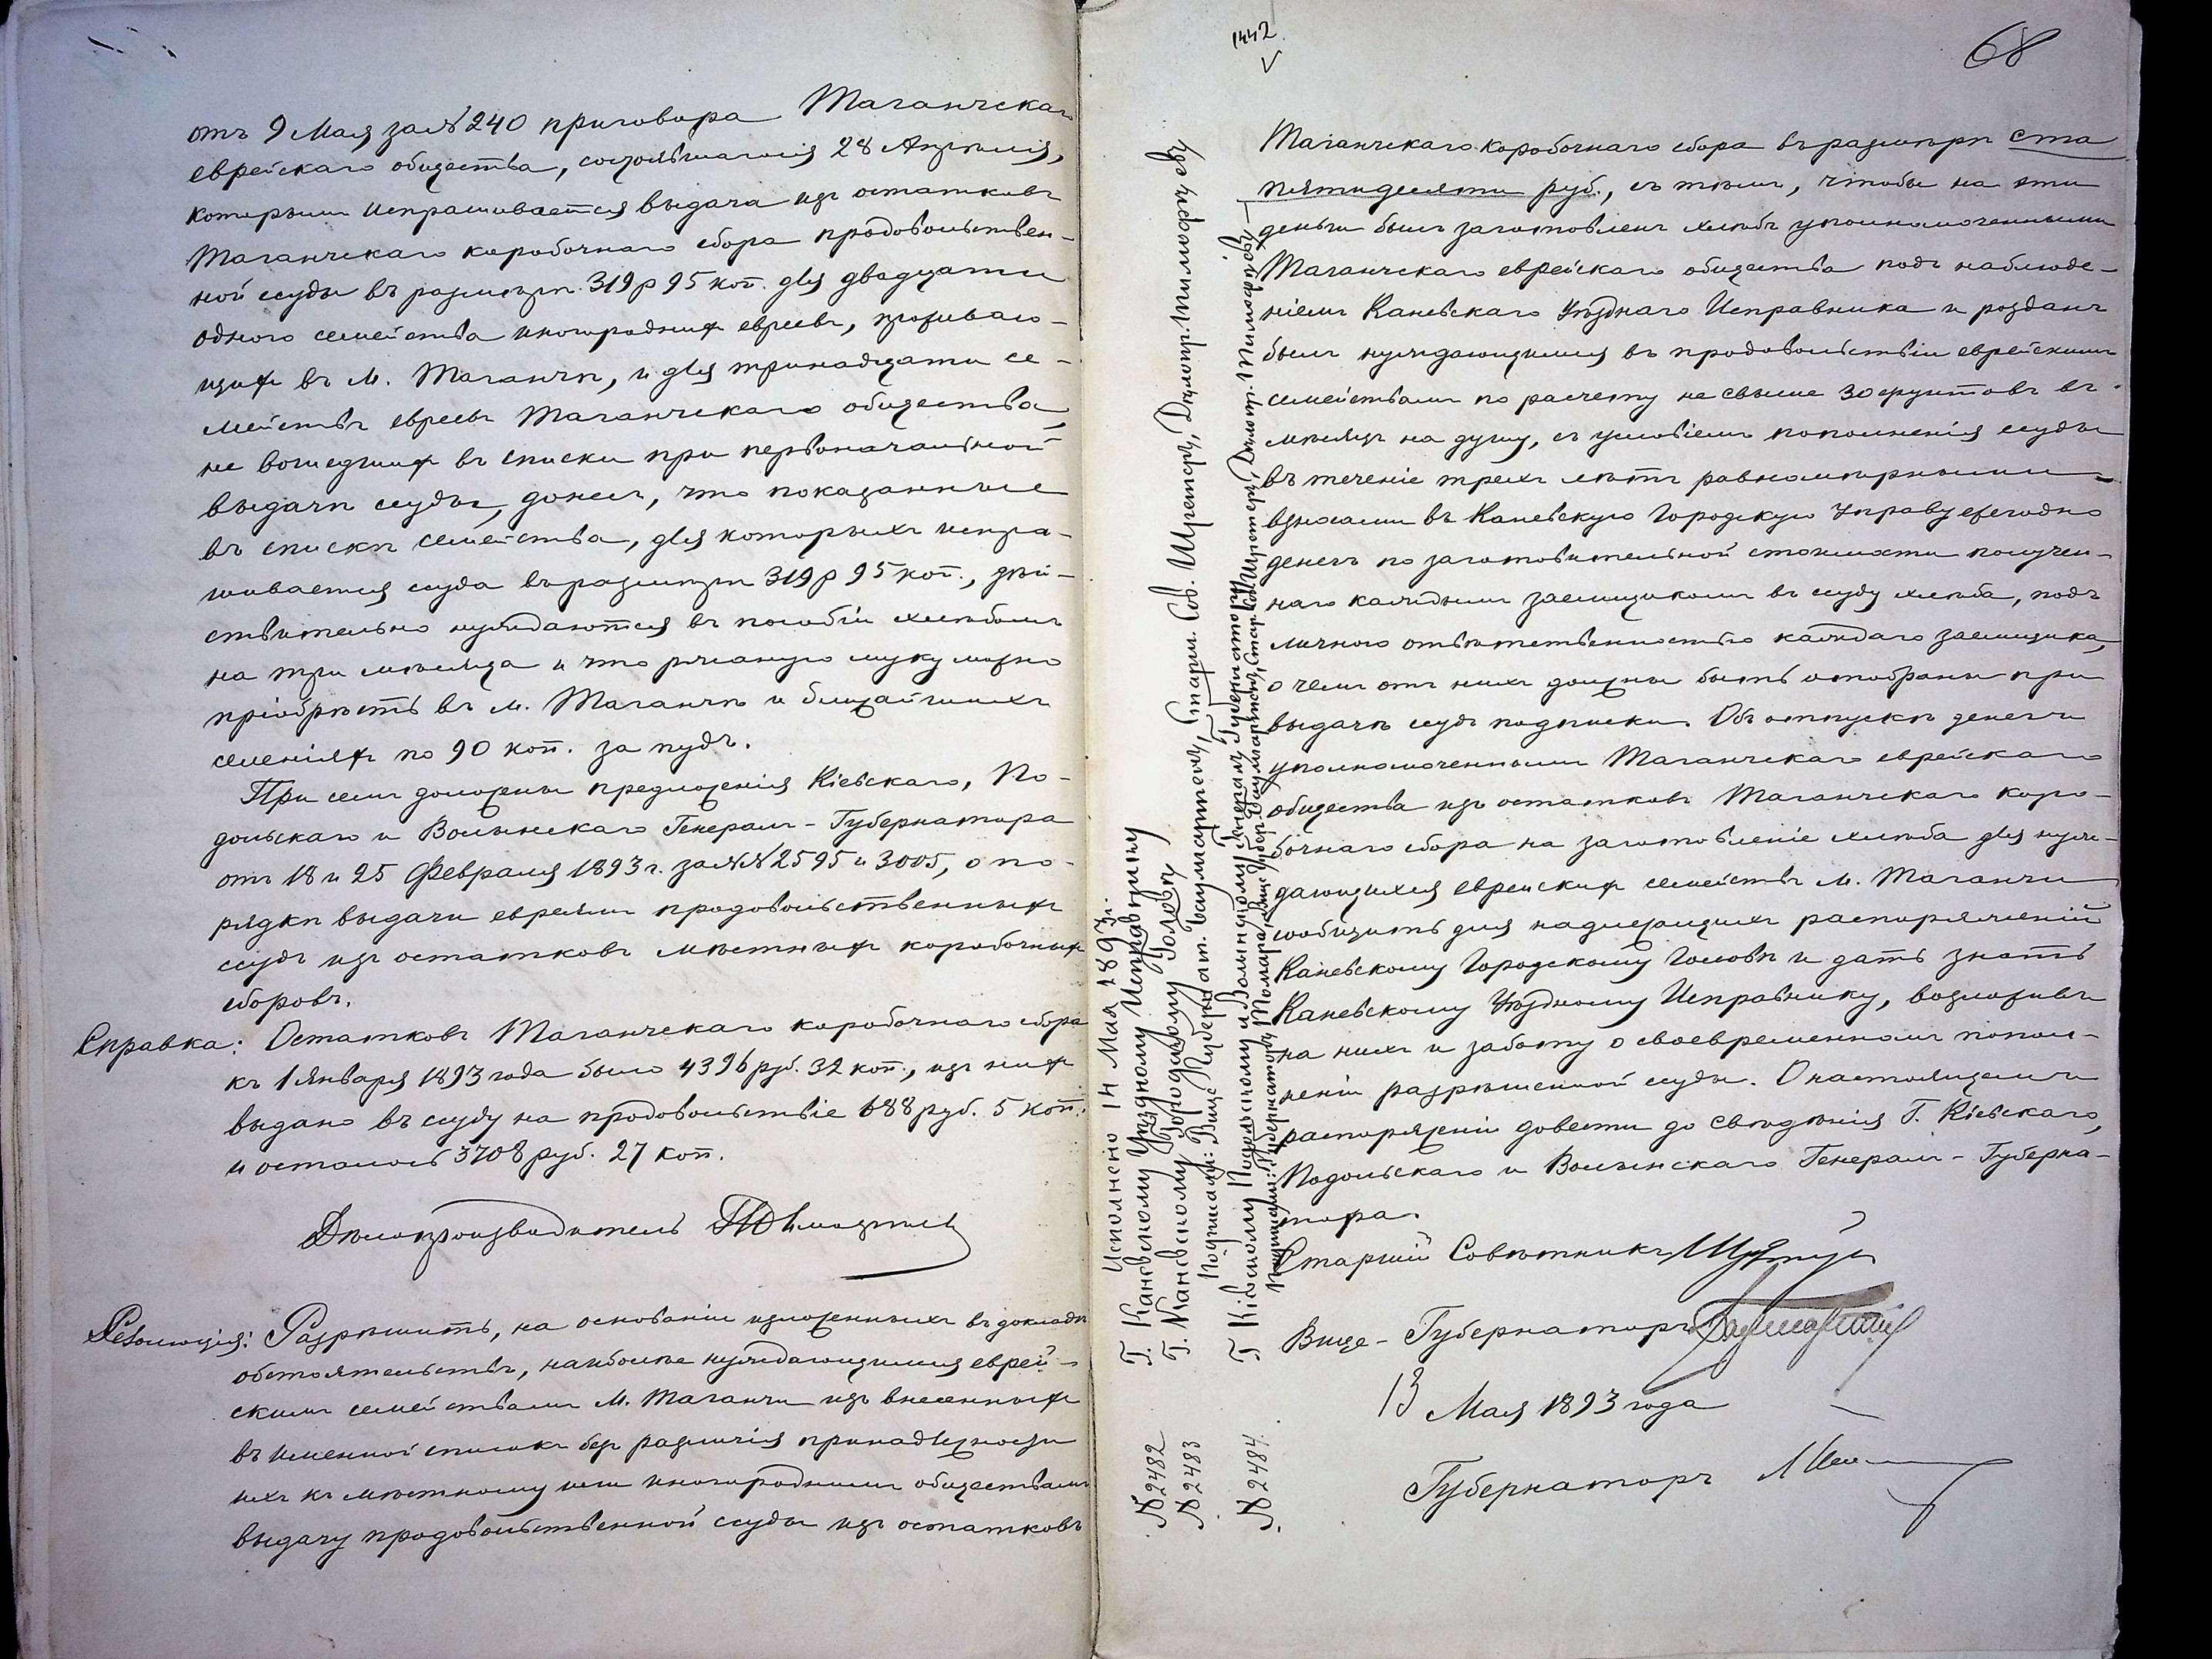 отъ 9 Мая за № 240 приговора Таганчскаго
еврейскаго общества, состоявшагося 28 Апрѣля,
которымъ испрашивается выдача изъ остатковъ
Таганчскаго коробочнаго сбора продовольствен-
ной ссуды въ размѣрѣ 319 р 95 коп. для двадцати
одного семейства иногороднихъ евреевъ, прожива-
ющихъ въ м. Таганчѣ, и для тринадцати се-
мействъ евреевъ Таганчскаго общества,
не вошедшихъ въ списки при первоначальной
выдачѣ ссуды, донесъ, что показанныя
въ спискѣ семейства, для которыхъ испра-
шивается ссуда въ размѣрѣ 319 р 95 коп., дѣй-
ствительно нуждаются въ пособіи хлѣбомъ
на три мѣсяца и что ржаную муку можно
пріобрѣсть въ м. Таганчѣ и ближайшихъ
селеніяхъ по 90 коп. за пудъ.
При семъ доложены предложенія Кіевскаго, По-
дольскаго и Волынскаго Генералъ-Губернатора
отъ 18 и 25 Февраля 1893 г. за №№ 2595 и 3005, о по-
рядкѣ выдачи евреямъ продовольственныхъ
ссудъ изъ остатковъ мѣстныхъ коробочныхъ
сборовъ.
Справка: Остатковъ Таганчскаго коробочнаго сбора
къ 1 Января 1893 года было 4396 руб. 32 коп., изъ нихъ
выдано въ ссуду на продовольствіе 688 руб. 5 коп.
и осталось 3708 руб. 27 коп.
Дѣлопроизводитель
Резолюція: Разрѣшить, на основаніи изложенныхъ въ докладѣ
обстоятельствъ, наиболѣе нуждающимся еврей-
скимъ семействамъ м. Таганчи изъ внесенныхъ
въ именной списокъ безъ различія принадлежности
ихъ къ мѣстному или иногороднимъ обществамъ
выдачу продовольственной ссуды изъ остатковъ
1442
68
Таганчскаго коробочнаго сбора въ размѣрѣ ста
пятидесяти руб., съ тѣмъ, чтобы на эти
деньги былъ заготовленъ хлѣбъ уполномоченными
Таганчскаго еврейскаго общества подъ наблюде-
ніемъ Каневскаго Уѣзднаго Исправника и розданъ
былъ нуждающимся въ продовольствіи еврейскимъ
семействамъ по расчету не свыше 30 фунтовъ въ
мѣсяцъ на душу, съ условіемъ пополненія ссуды
въ теченіе трехъ лѣтъ равномѣрными
взносами въ Каневскую Городскую Управу ежегодно
денегъ по заготовительной стоимости получен-
наго каждымъ заемщикомъ въ ссуду хлѣба, подъ
личною отвѣтственностью каждаго заемщика,
о чемъ отъ нихъ должны быть отобраны при
выдачѣ ссудъ подписки. Объ отпускѣ денегъ
уполномоченнымъ Таганчскаго еврейскаго
общества изъ остатковъ Таганчскаго коро-
бочнаго сбора на заготовленіе хлѣба для нуж-
дающихся еврейскихъ семействъ м. Таганчи
сообщить для надлежащихъ распоряженій
Каневскому Городскому Головѣ и дать знать
Каневскому Уѣздному Исправнику, возложивъ
на нихъ и заботу о своевременномъ попол-
неніи разрѣшенной ссуды. О настоящемъ
распоряженіи довести до свѣдѣнія Г. Кіевскаго,
Подольскаго и Волынскаго Генералъ-Губерна-
тора.
Старшій Совѣтникъ
Вице-Губернаторъ
13 Мая 1893 года
Губернаторъ
Исполнено 14 Мая 1893 г.
№ 2482 Г. Каневскому Уѣздному Исправнику
№ 2483 Г. Каневскому Городскому Головѣ
Подписали: Вице Губернат. Баумгартенъ, Старш. Сов. Шретеръ, Дѣлопр.
№ 2484. Г Кіевскому Подольскому и Волынскому Генералъ Губернатору
Подписали: Губернаторъ Томара, Вице Губер. Баумгартенъ, Стар. Сов. Шретеръ, Дѣлопр.